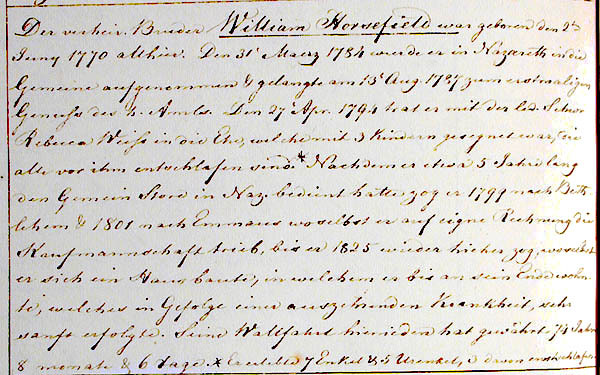 Der verheir. Bruder William Horsefield war geboren den 2ten
Juny 1770 allhier. Den 31t Maerz 1784 wurde er in Nazareth in die
Gemeine aufgenommen & gelangte am 13t Aug. 1787 zum erstmaligen
Genuss des h. Amls. Den 27 Apr. 1794 trat er mit der led. Schwr
Rebecca Weiss in die Ehe, welche mit 3 Kindern gesegnet war, die
alle vor ihm entschlafen sind.* Nachdem er etwa 5 Jahre lang
den Gemein Store in Naz. bedient hatte zog er 1799 nach Beth-
lehem & 1801 nach Emmaus woselbst er auf eigne Rechnung die
Kaufmannschaft trieb, bis er 1825 wieder hieher zog, woselbst
er sich ein Haus baute, in welchem er bis an sein Ende wohn-
te, welches in Gefolge einer auszehrenden Krankheit, sehr
sanft erfolgte. Seine Wallfahrt hienieden hat gewährt 74 Jahre
8 monate & 6 tage. * Er erlebte 7 Enkel & 5 Urenkel, davon entschlafen